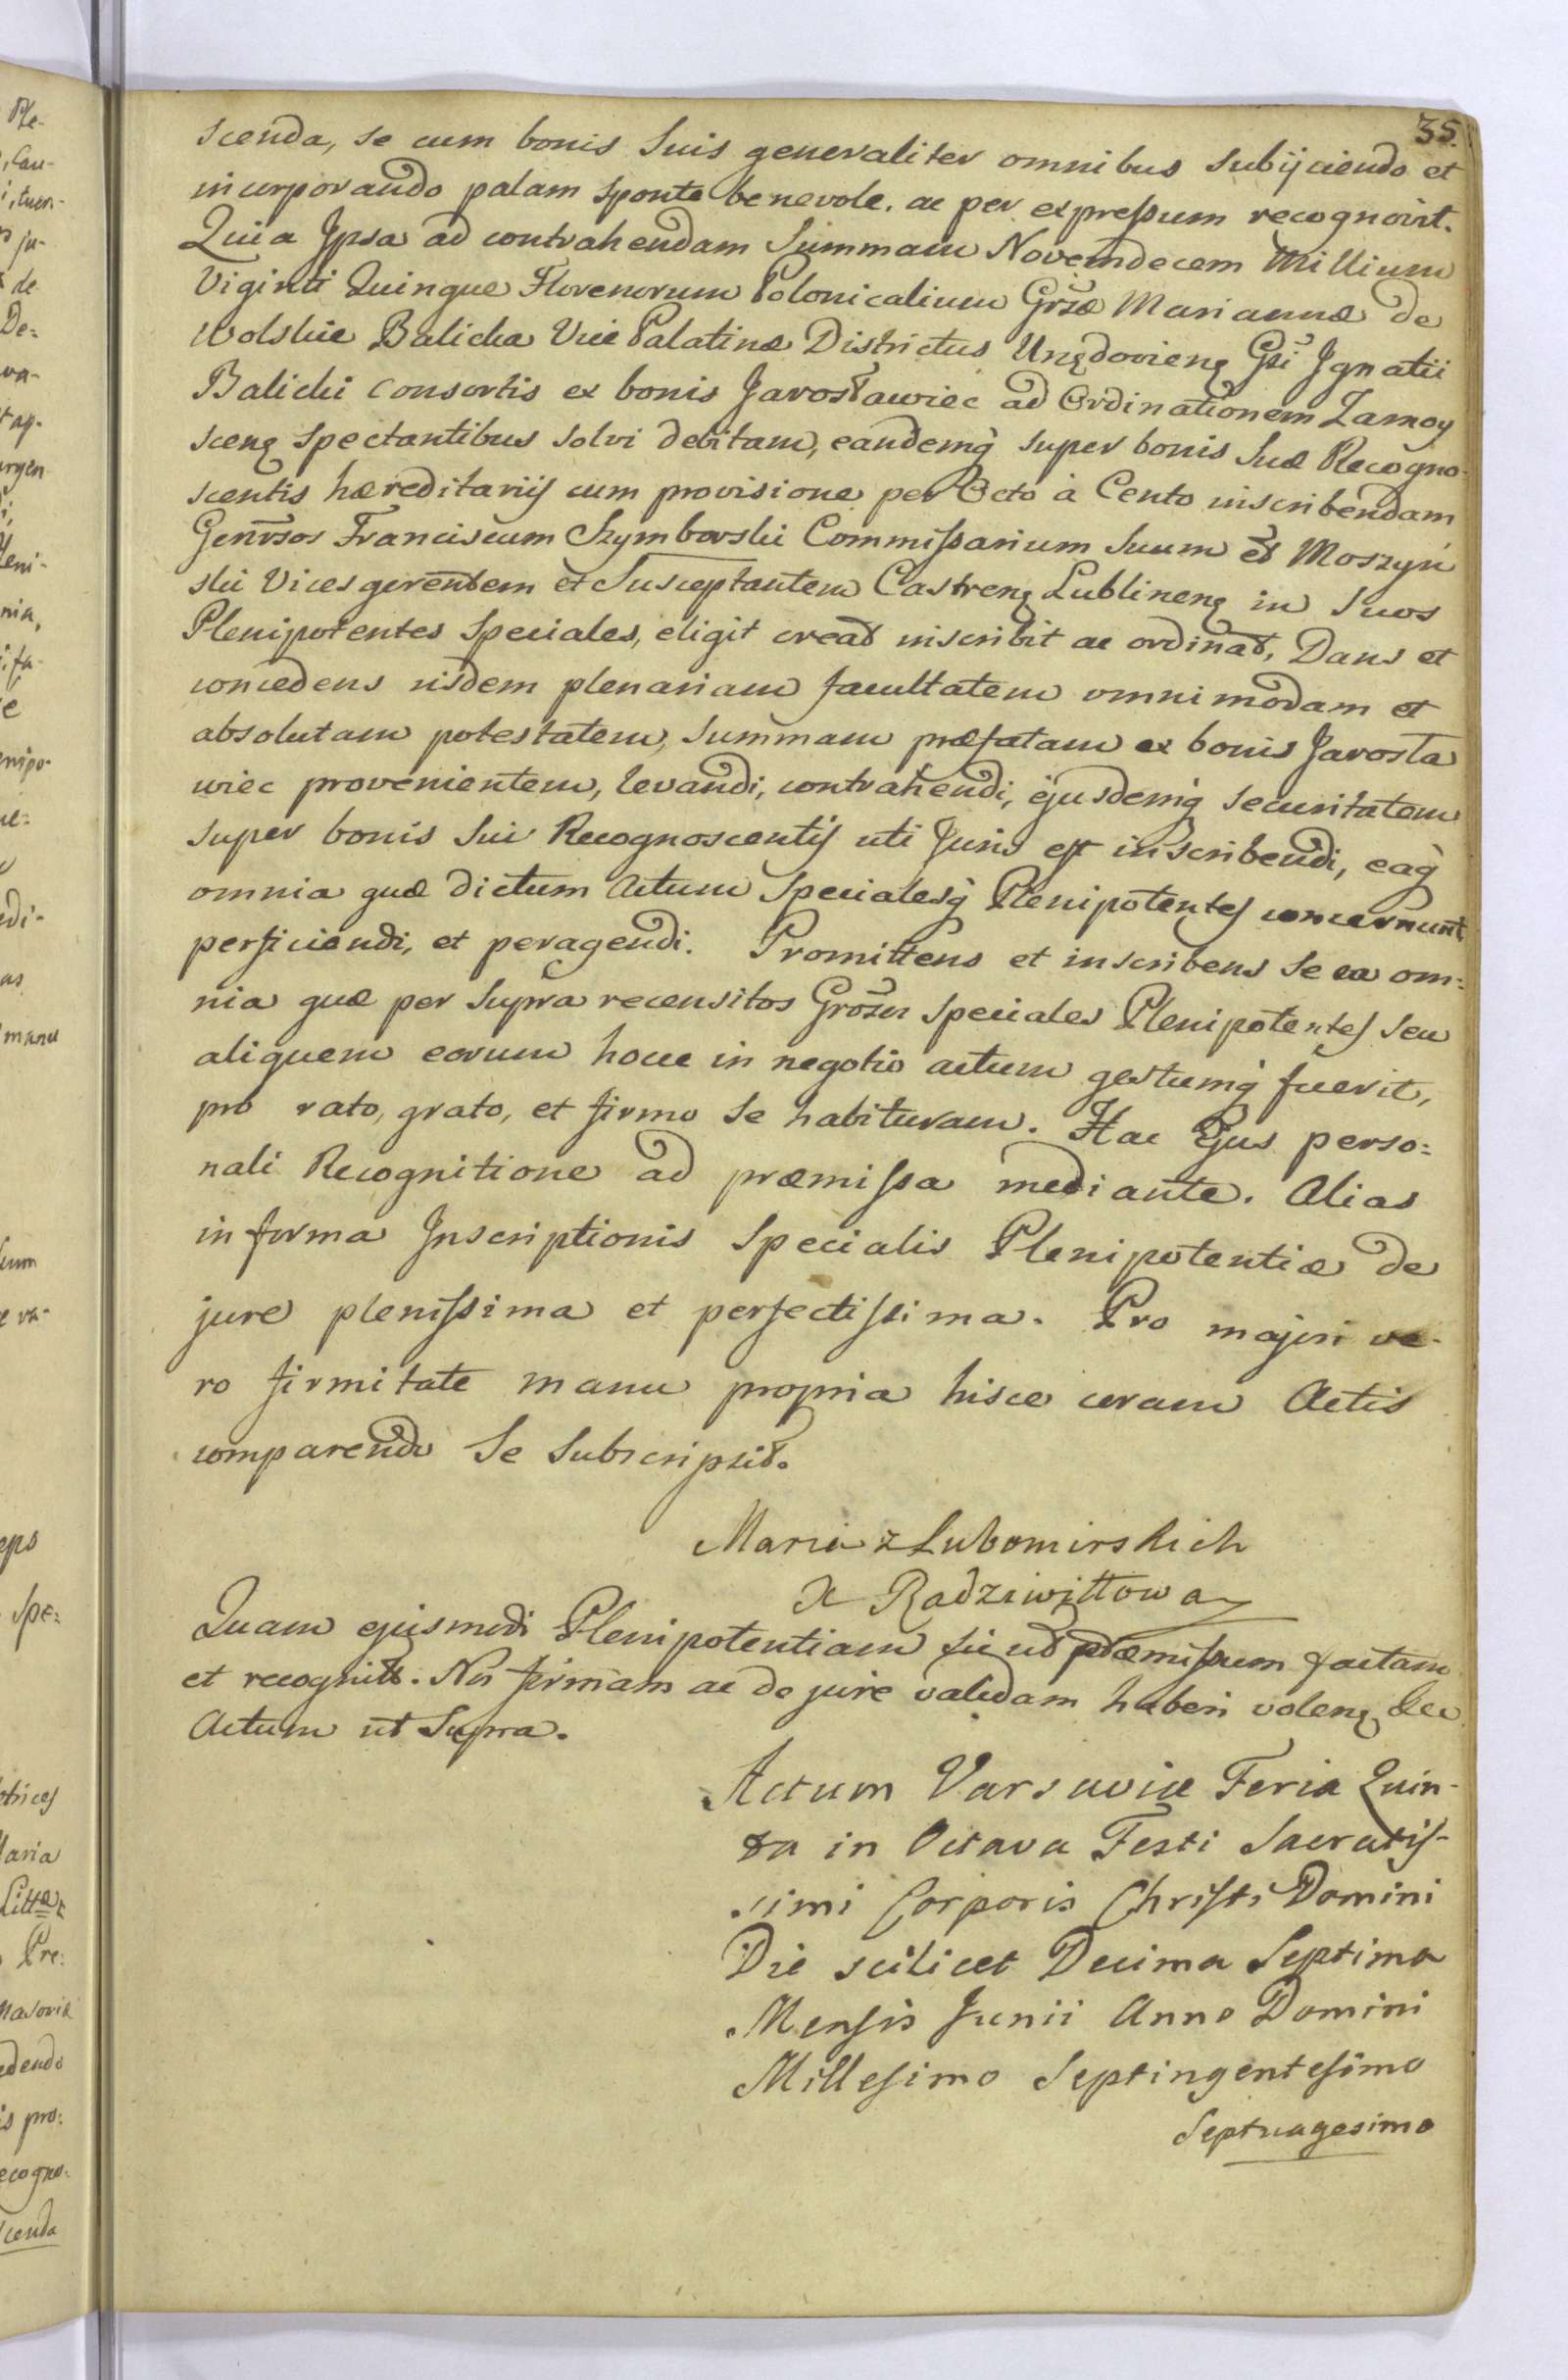 35.
scenda, se cum bonis Suis generaliter omnibus subijciendo et
incorporando palam sponte benevole. ac per expressum recognovit.
Quia Ipsa ad contrahendam Summam Novemdecem Millium
Viginti Quinque Florenorum Polonicalium Grsæ Mariannæ de
Wolskie Balicka Vice Palatinæ Districtus Urzędovieng Gsi Ignatii
Balicki Consortis ex bonis Jarosławiec ad Ordinationem Zamoy
sceng spectantibus solvi debitam, eandemq̀ super bonis Suæ Recogno-
scentis hæreditariis cum provisione per Octo à Cento inscribendam
Genrsos Franciscum Szymborski Commissarium Suum et Moszyń
ski Vices gerentem et Susceptantem Castreng Lublineng in Suos
Plenipotentes Speciales, eligit creat inscribit ac ordinat, Dans et
concedens iisdem plenariam facultatem omnimodam et
absolutam potestatem, Summam præfatam ex bonis Jarosła
wiec provenientem, levandi, contrahendi, ejusdemq̀ securitatem
super bonis Sui Recognoscentis uti Juris est inscribendi, eaq̀
omnia quæ dictum actum Specialesq̀ Plenipotentes concernunt
perficiendi, et peragendi. Promittens et inscribens Se ea om:
nia quæ per Supra recensitos Grosos Speciales Plenipotentes seu
aliquem eorum hocce in negotio actum gestumq̀ fuerit,
pro rato, grato, et firmo Se habituram. Hac Ejus perso:
nali Recognitione ad præmissa mediante. Alias
in forma Inscriptionis Specialis Plenipotentiæ de
jure plenissima et perfectissima. Pro majori ve-
ro firmitate manu propria hisce coram Actis
comparendo Se Subscripsit.
Maria z Lubomirskich
X Radziwiłłowa
Quam ejusmodi Plenipotentiam sic ut præmissum factam
et recognitt. Nos firmam ac de jure validam haberi voleng &cc
Actum ut Supra.
Actum Varsaviæ Feria Quin-
ta in Octava Festi Sacratis-
simi Corporis Christi Domini
Die scilicet Decima Septima
Mensis Junii Anno Domini
Millesimo Septingentesimo
Septuagesimo